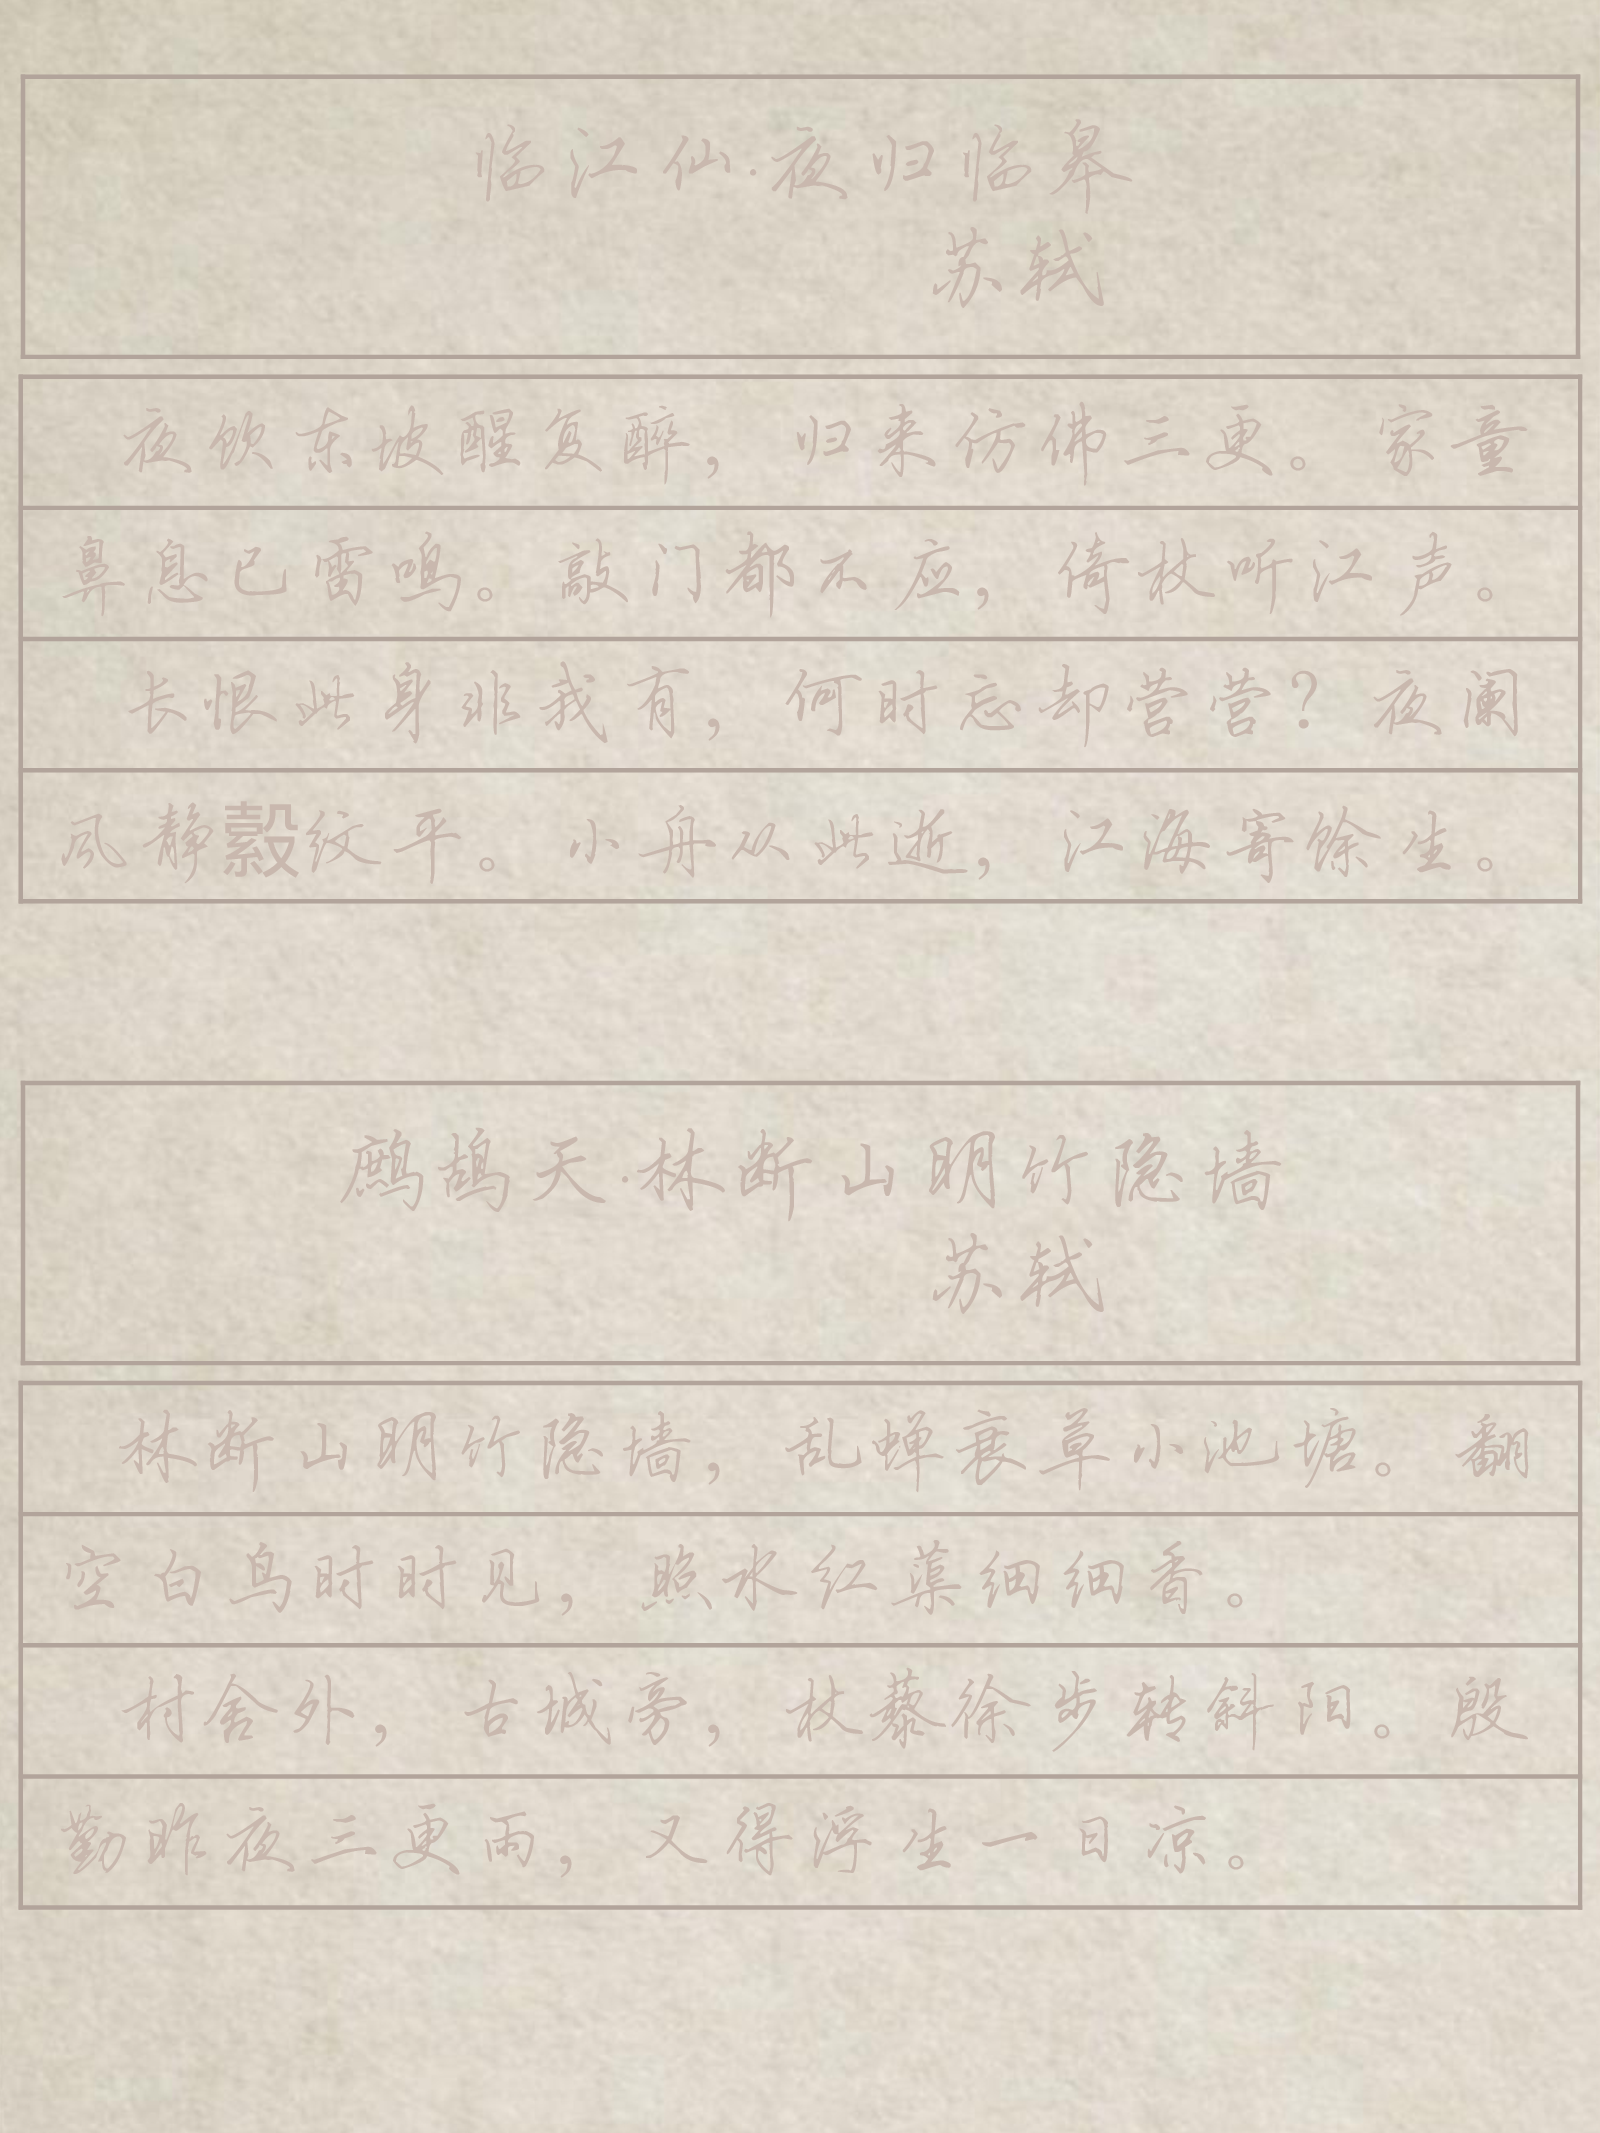 临江仙·夜归临皋
苏轼
夜饮东坡醒复醉，归来仿佛三更。家童
鼻息已雷鸣。敲门都不应，倚杖听江声。
长恨此身非我有，何时忘却营营？夜阑
风静縠纹平。小舟从此逝，江海寄馀生。
鹧鸪天·林断山明竹隐墙
苏轼
林断山明竹隐墙，乱蝉衰草小池塘。翻
空白鸟时时见，照水红蕖细细香。
村舍外，古城旁，杖藜徐步转斜阳。殷
勤昨夜三更雨，又得浮生一日凉。